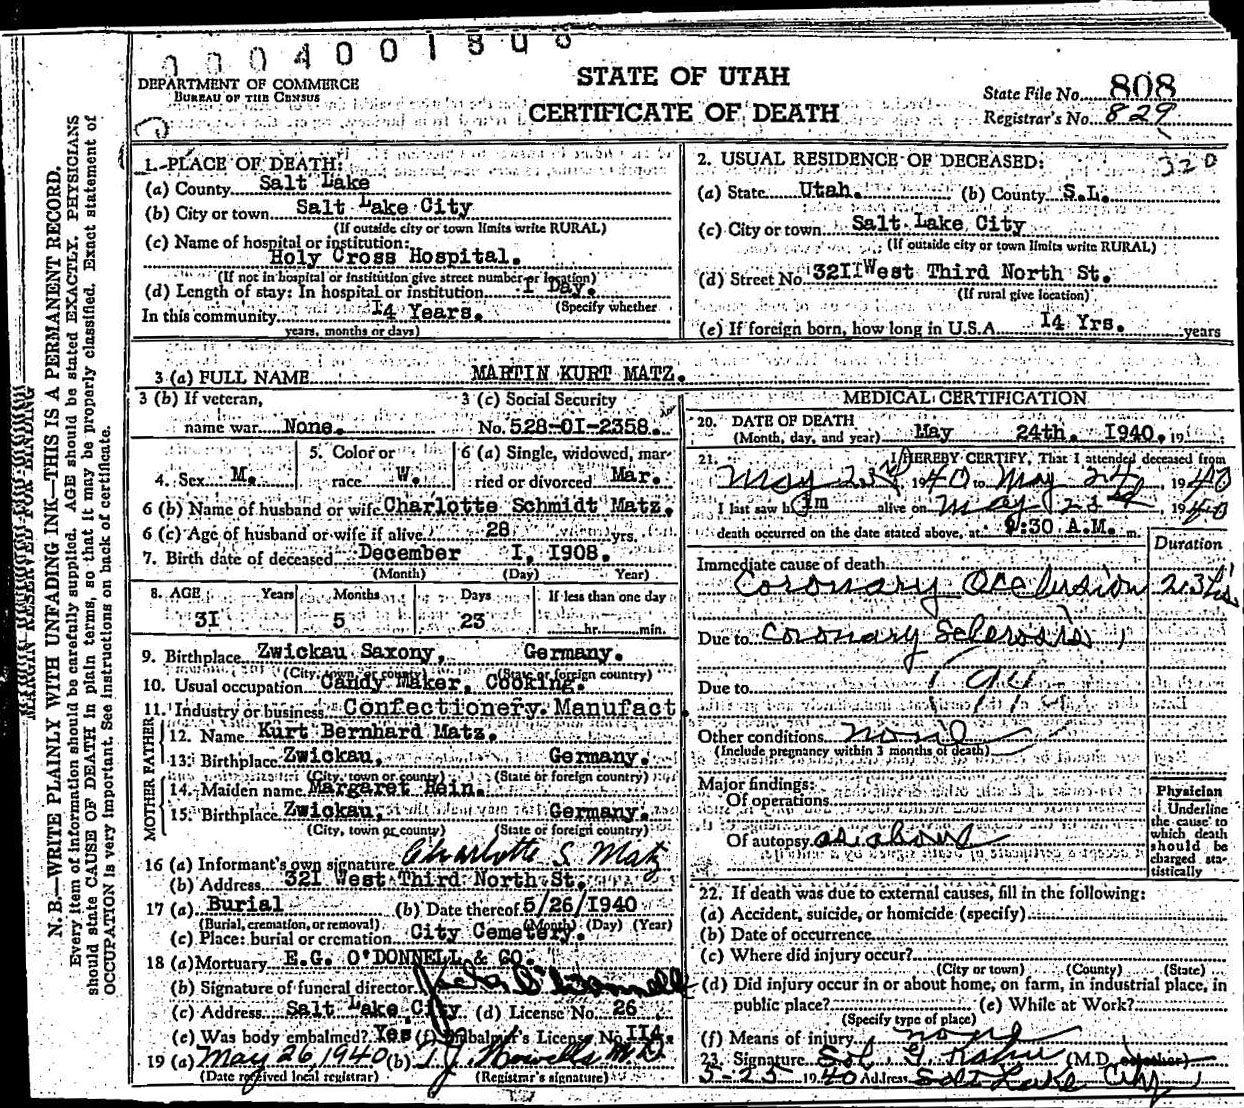 0004001808
DEPARTMENT OF COMMERCE
BUREAU OF THE CENSUS
STATE OF UTAH
CERTIFICATE OF DEATH
State File No. 808
Registrar's No. 829
MARGIN RESERVED FOR BINDING
N. B.—WRITE PLAINLY WITH UNFADING INK—THIS IS A PERMANENT RECORD.
Every item of information should be carefully supplied. AGE should be stated EXACTLY. PHYSICIANS
should state CAUSE OF DEATH in plain terms, so that it may be properly classified. Exact statement of
OCCUPATION is very important. See instructions on back of certificate.
1. PLACE OF DEATH:
(a) County Salt Lake
(b) City or town Salt Lake City
(If outside city or town limits write RURAL)
(c) Name of hospital or institution:
Holy Cross Hospital.
(If not in hospital or institution give street number or location)
(d) Length of stay: In hospital or institution I Day.
(Specify whether
In this community I4 Years.
years, months or days)
2. USUAL RESIDENCE OF DECEASED: 320
(a) State Utah. (b) County S.L.
(c) City or town Salt Lake City
(If outside city or town limits write RURAL)
(d) Street No. 32II West Third North St.
(If rural give location)
(e) If foreign born, how long in U.S.A. I4 Yrs. years
3 (a) FULL NAME MARTIN KURT MATZ.
3 (b) If veteran,
name war None.
3 (c) Social Security
No. 528-OI-2358.
4. Sex M.
5. Color or
race W.
6 (a) Single, widowed, mar-
ried or divorced Mar.
6 (b) Name of husband or wife Charlotte Schmidt Matz.
6 (c) Age of husband or wife if alive 28 yrs.
7. Birth date of deceased December I, I908.
(Month) (Day) Year)
8. AGE Years Months Days If less than one day
3I 5 23 hr. min.
9. Birthplace Zwickau Saxony, Germany.
(City, town, or county) (State or foreign country)
10. Usual occupation Candy Maker, Cooking.
11. Industry or business Confectionery Manufact.
FATHER
12. Name Kurt Bernhard Matz.
13. Birthplace Zwickau, Germany.
(City, town or county) (State or foreign country)
MOTHER
14. Maiden name Margaret Hein.
15. Birthplace Zwickau, Germany.
(City, town or county) (State or foreign country)
16 (a) Informant's own signature Charlotte S Matz
(b) Address 32I West Third North St.
17 (a) Burial (b) Date thereof 5/26/I940
(Burial, cremation, or removal) (Month) (Day) (Year)
(c) Place: burial or cremation City Cemetery.
18 (a) Mortuary E.G. O'DONNELL & CO.
(b) Signature of funeral director O'Donnell
(c) Address Salt Lake City (d) License No. 26
(e) Was body embalmed? Yes (f) Embalmer's License No. II4.
19 (a) May 26, 1940 (b) T. J. Howells M.D.
(Date received local registrar) (Registrar's signature)
MEDICAL CERTIFICATION
20. DATE OF DEATH
(Month, day, and year) May 24th. I940. 19
21. I HEREBY CERTIFY, That I attended deceased from
May 23rd 1940 to May 24, 1940
I last saw him alive on May 23rd, 1940
death occurred on the date stated above, at :30 A.M. m.
Duration
Immediate cause of death
Coronary Occlusion
Due to Coronary Sclerosis
Due to 94
Other conditions none
(Include pregnancy within 3 months of death)
Major findings:
Of operations
Of autopsy as above
Physician
Underline
the cause to
which death
should be
charged sta-
tistically
22. If death was due to external causes, fill in the following:
(a) Accident, suicide, or homicide (specify)
(b) Date of occurrence
(c) Where did injury occur?
(City or town) (County) (State)
(d) Did injury occur in or about home, on farm, in industrial place, in
public place? (e) While at Work?
(Specify type of place)
(f) Means of injury none
23. Signature Sol G. Kahn (M.D. or other)
5-25 1940 Address Salt Lake City